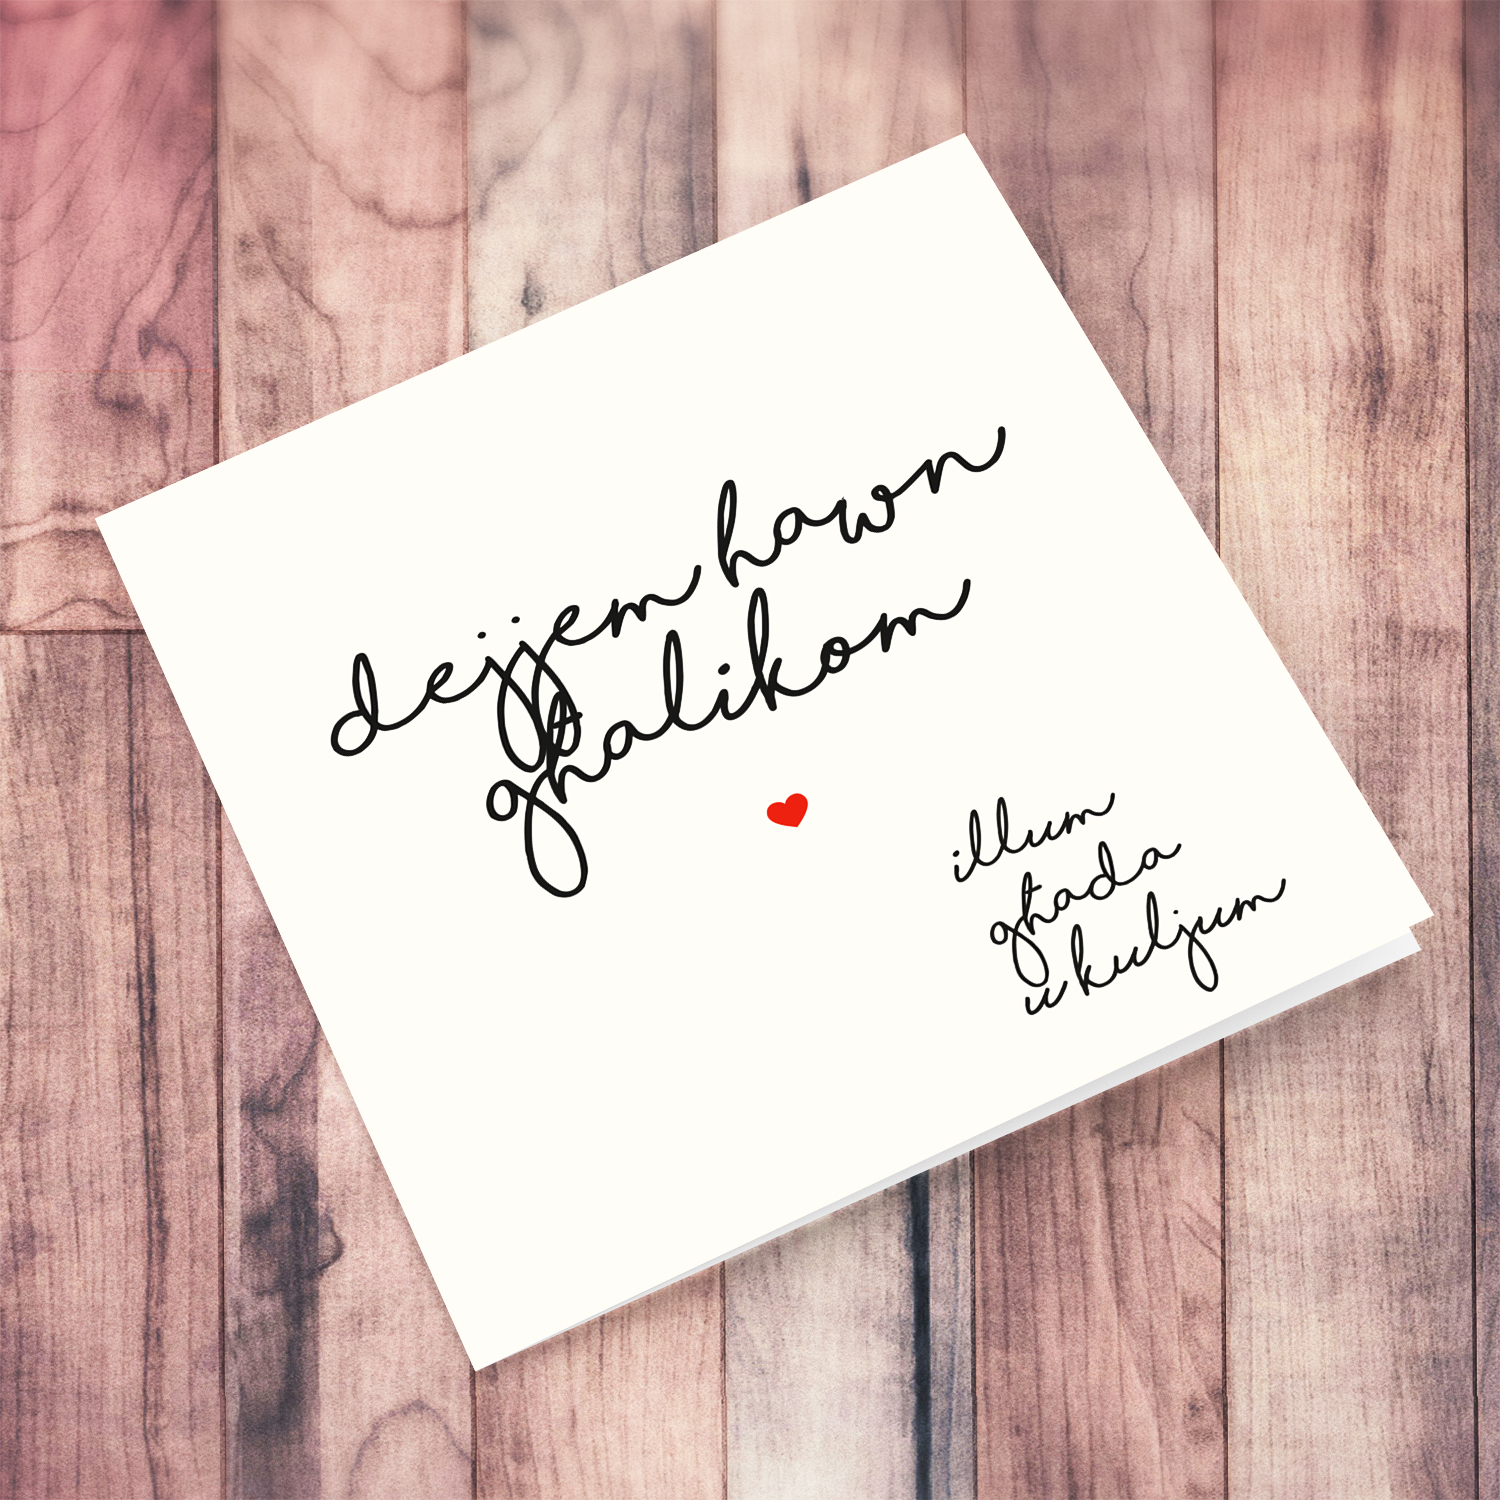 dejjem hawn
għalikom
illum
għada
u kuljum